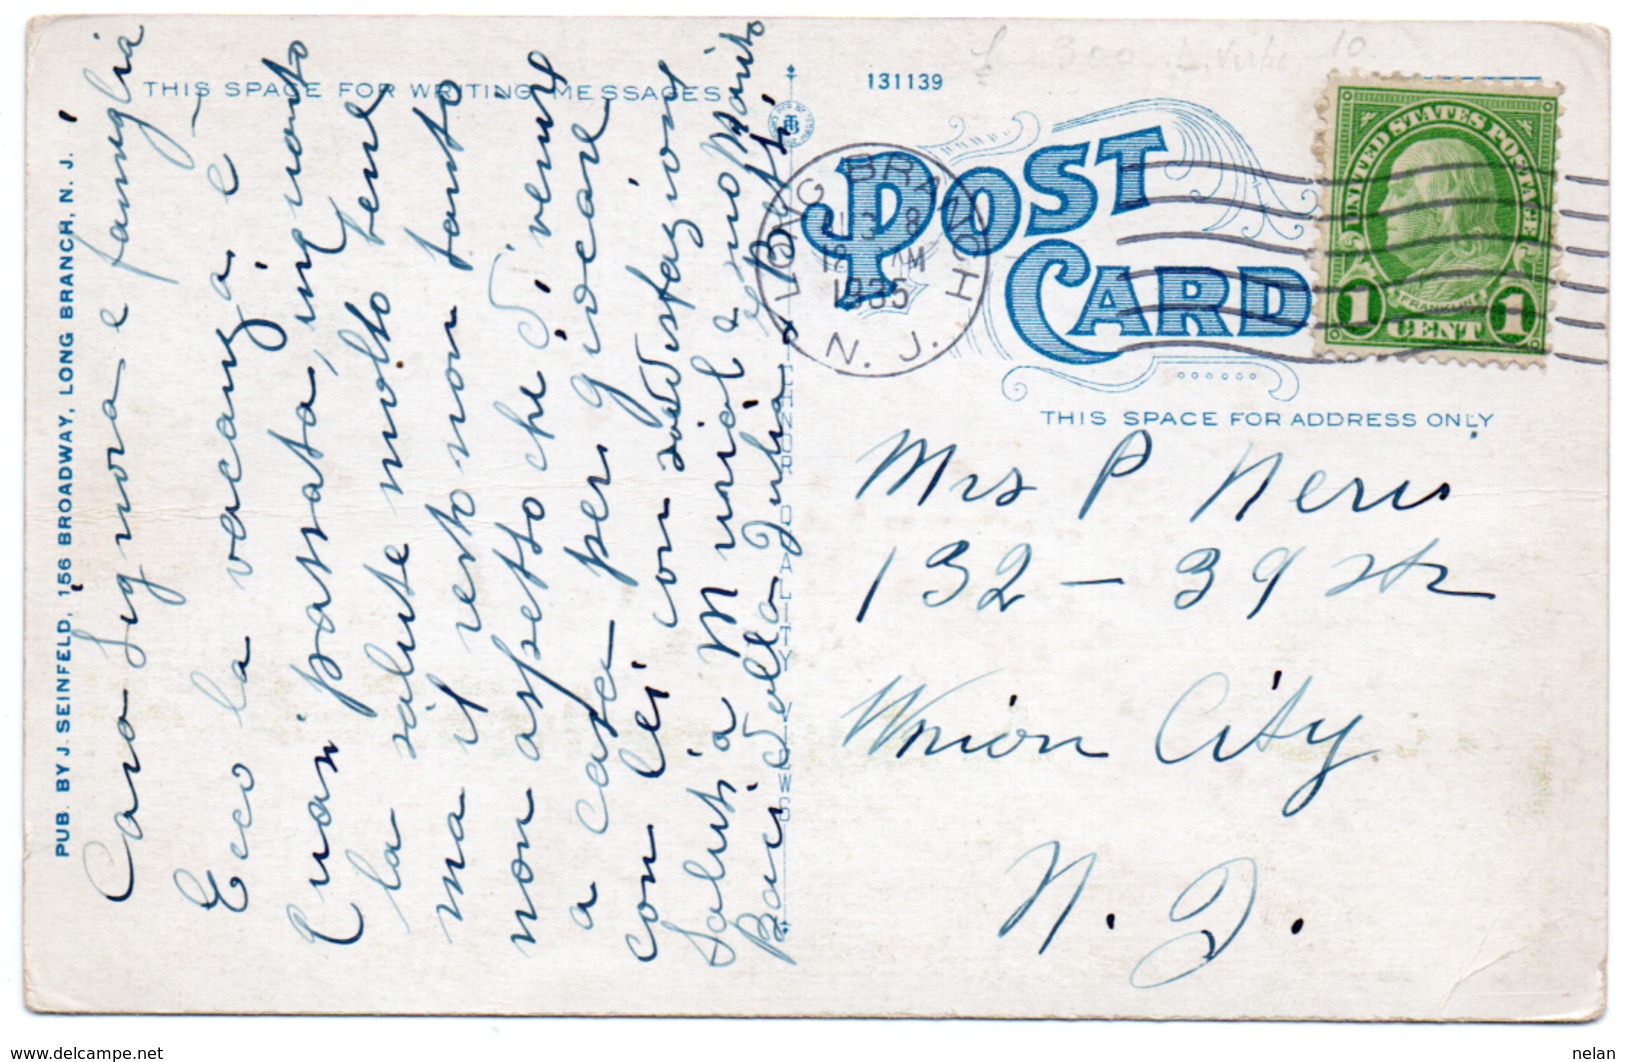 THIS SPACE FOR WRITING MESSAGES
131139
POST
CARD
LONG BRANCH
8
AM
1935
N. J.
UNITED STATES POSTAGE
FRANKLIN
1 CENT 1
THIS SPACE FOR ADDRESS ONLY
Mrs P Neri
132 – 39 Str
Union City
N. J.
PUB. BY J. SEINFELD, 156 BROADWAY, LONG BRANCH, N. J.
Cara Signora e famiglia
Ecco la vacanza è
quasi passata, in quanto
la salute molto bene
ma il resto non tanto
non aspetto che di venire
a casa per giocare
con lei con soddisfazione
Saluti a Muriol e suo Marito
e Betsi
Baci dalla Julia
www.delcampe.net
nelan